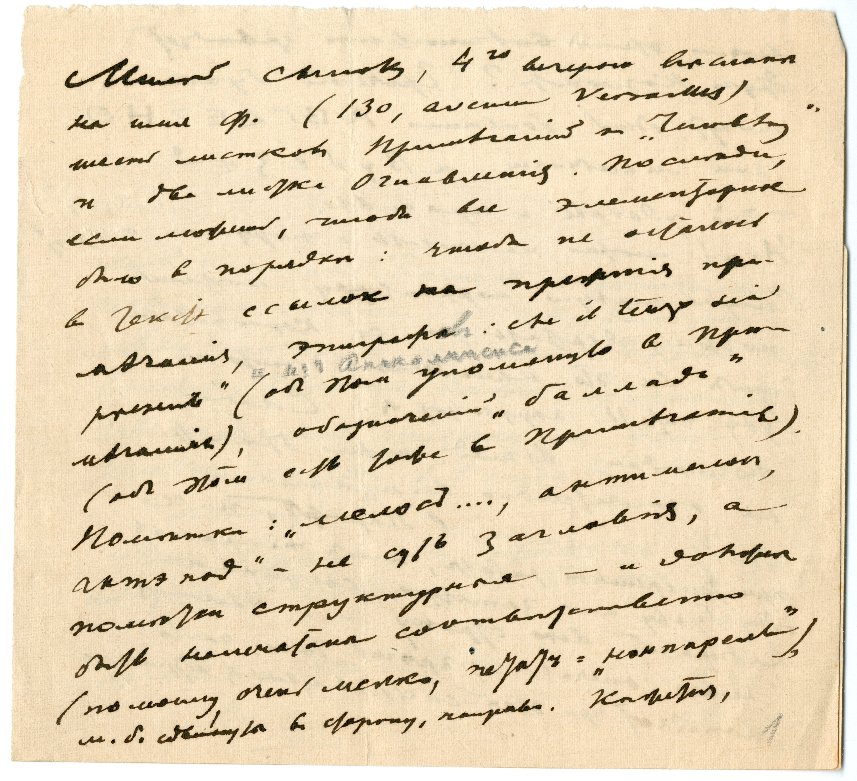 Милый сынок, 4го вечером послана
на имя Ф. (130, avenue Versailles)
шесть листков Примечаний к "Человеку"
и два листка Оглавления. Последи,
если можно, чтобы все элементарное
было в порядке: чтобы не осталось
в тексте ссылок на прежния при-
мечания, эпиграфа:
и из Апокалипсиса
" (об этом упомянуто в При-
мечаниях), обозначений "баллады"
(об этом есть тоже в Примечаниях).
Пометки: "мелос...., антимелос,
антэпод" – не суть заглавия, а
пометки структурныя – и должны
быть напечатаны соответственно
(по моему очень мелко, петит = "нонпарель",
м. б. сдвинуты в сторону, направо. Кажется,
1